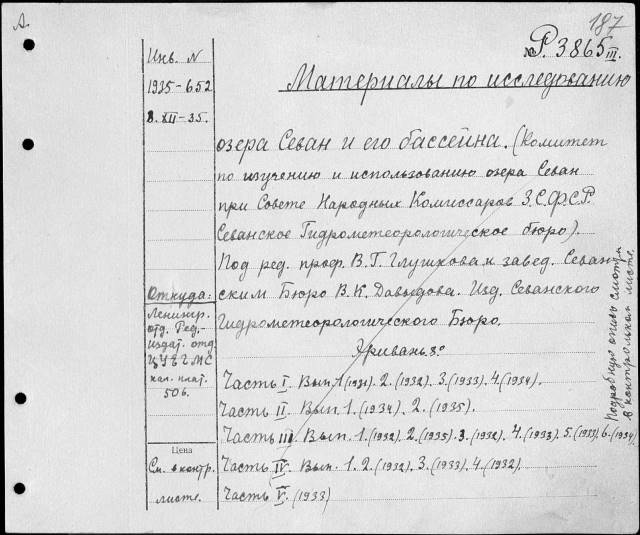 А.
187
№ Р. 3865 III.
Инв. N
1935-652
8. XII-35.
Материалы по исследованию
озера Севан и его бассейна. (Комитет
по изучению и использованию озера Севан
при Совете Народных Комиссаров З.С.Ф.С.Р.
Севанское Гидрометеорологическое бюро).
Под ред. проф. В.Г. Глушкова и завед. Севан-
ским Бюро В.К. Давыдова. Изд. Севанского
Гидрометеорологического Бюро.
Эривань. 8°
Часть I. Вып. 1 (1931). 2. (1932). 3. (1933). 4. (1934).
Часть II. Вып. 1. (1934). 2. (1935).
Часть III. Вып. 1. (1932). 2. (1935). 3. (1932). 4. (1933). 5. (1933). 6. (1934)
Часть IV. Вып. 1. 2. (1932). 3. (1933). 4. (1932).
Часть V. (1933)
Откуда:
Ленингр.
отд. Ред.-
издат. отд.
ЦУЕГМС
кал. плат.
506.
Цена
См. в контр.
листе.
Подробную опись смотри
в контрольном листе.